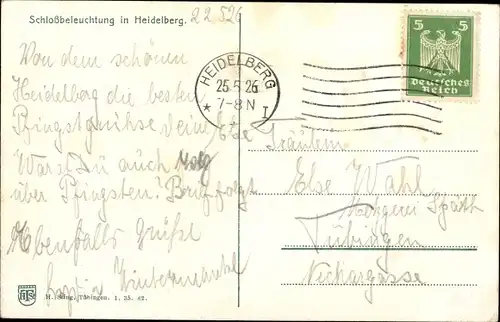 Schloßbeleuchtung in Heidelberg.
22526
Von dem schönen
Heidelberg die besten
Pfingstgrüße
Warst Du auch weg
über Pfingsten? Brief folgt
Ebenfalls Grüße
HEIDELBERG
25.5.26
7-8 N
* I
5 5
Deutsches
Reich
Fräulein
Else Wahl
Metzgerei Späth
Tübingen
Neckargasse
H. Sting, Tübingen. 1. 25. 62.